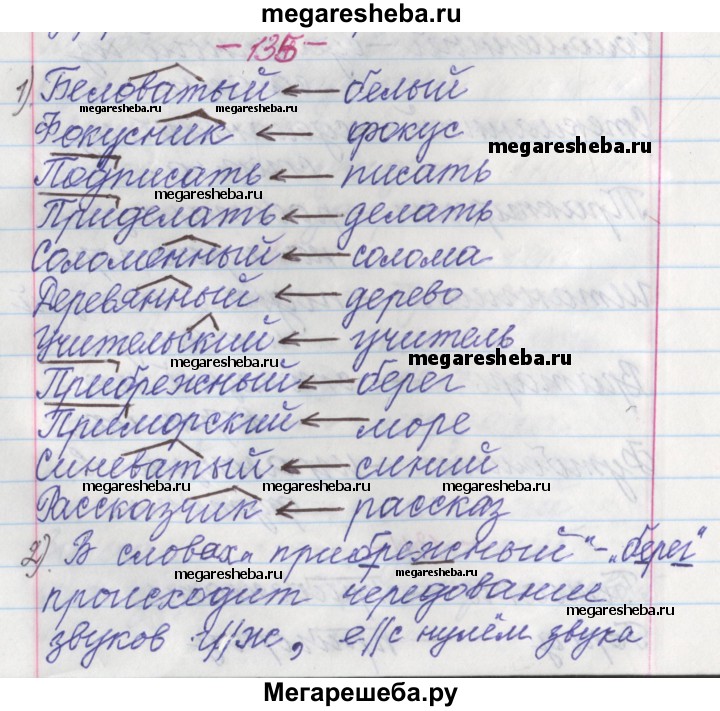 megaresheba.ru
- 135 -
1). Беловатый ← белый
megaresheba.ru megaresheba.ru
Фокусник ← фокус
megaresheba.ru
Подписать ← писать
megaresheba.ru
Приделать ← делать
Соломенный ← солома
Деревянный ← дерево
Учительский ← учитель
megaresheba.ru megaresheba.ru
Прибрежный ← берег
Приморский ← море
Синеватый ← синий
megaresheba.ru megaresheba.ru
Рассказчик ← рассказ
2). В словах „прибрежный“ - „берег“
megaresheba.ru megaresheba.ru
происходит чередование
megaresheba.ru
звуков г//ж, е//с нулём звука
megaresheba.ru
Мегарешеба.ру